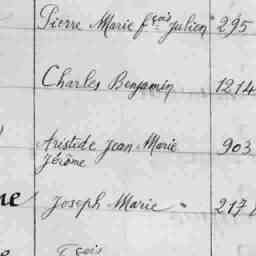 Pierre Marie fçois Julien 295
Charles Benjamin 1214
Aristide Jean Marie 903
Jérôme
Joseph Marie 217
çois